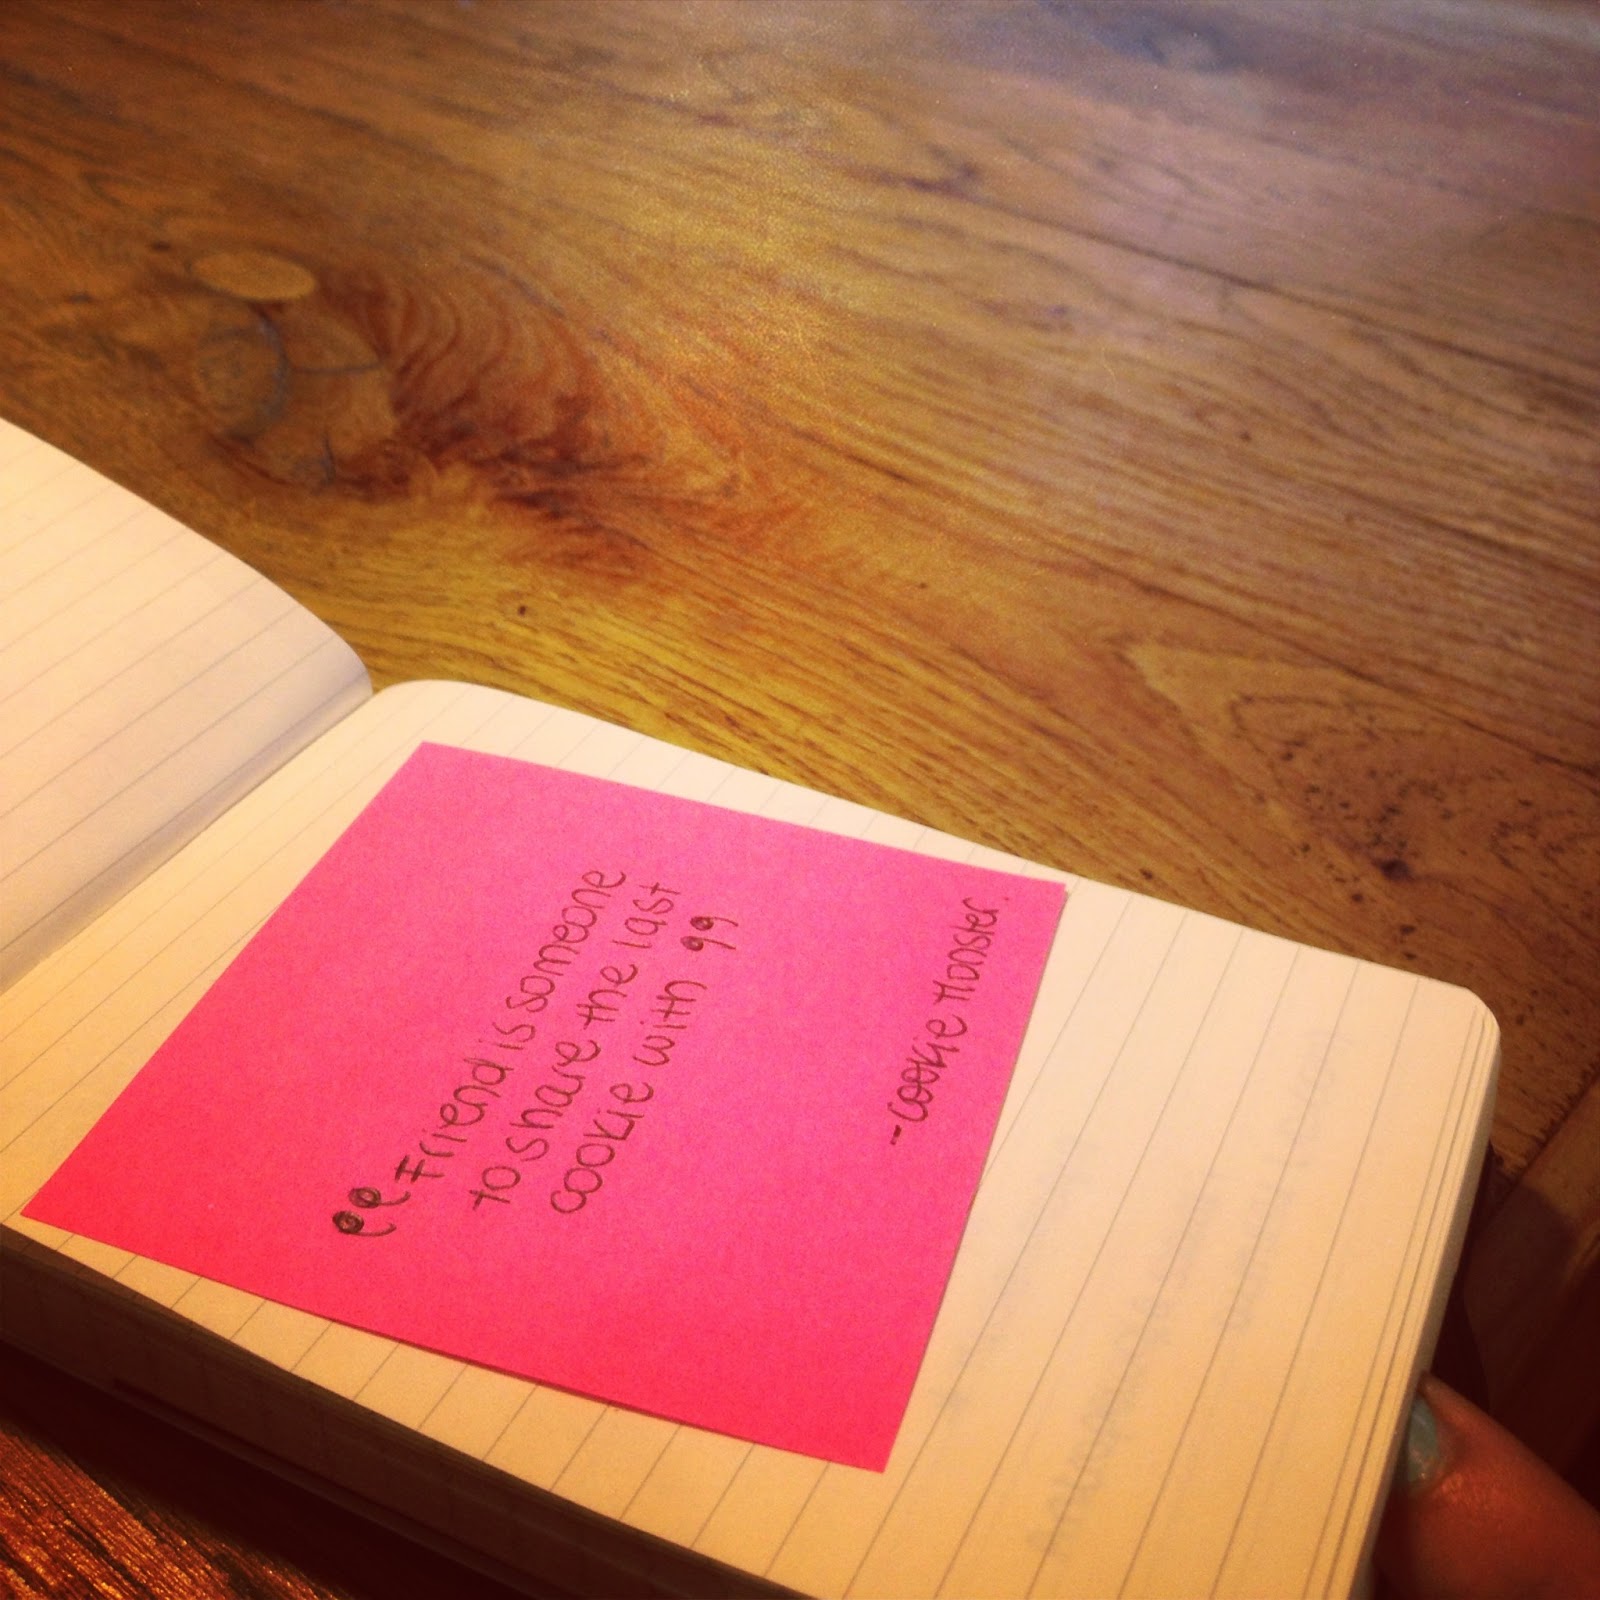 “Friend is someone
to share the last
cookie with”
-Cookie Monster.